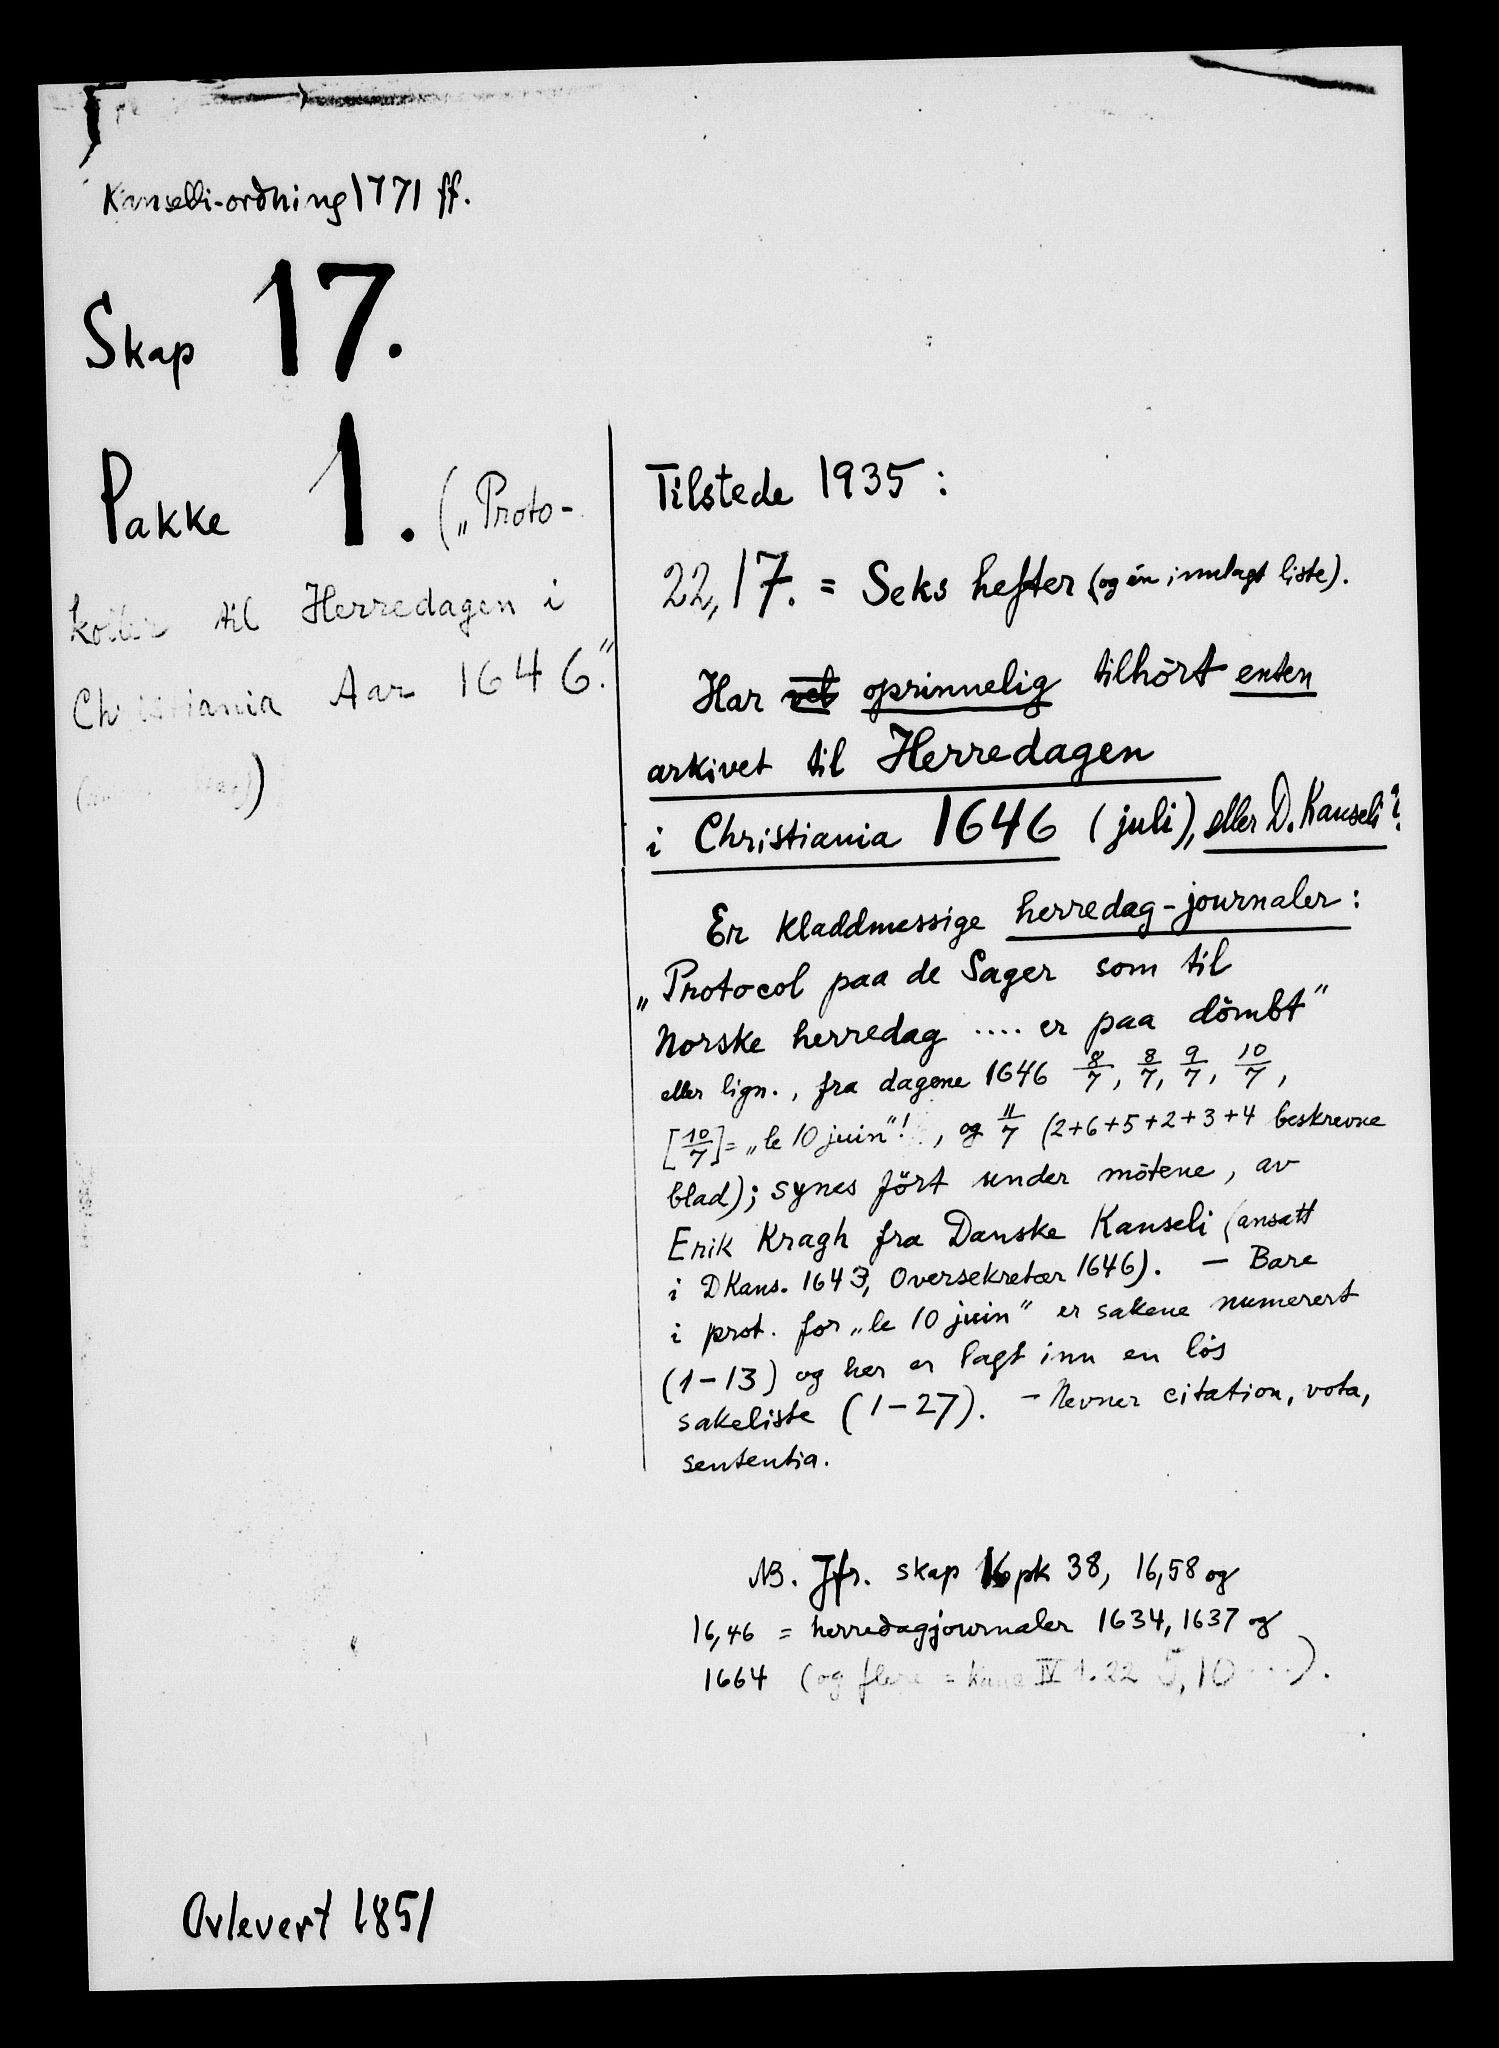 Kanselli-ordning 1771 ff.
Skap 17.
Pakke 1. („Proto-
koller til Herredagen i
Christiania Aar 1646."
Tilstede 1935:
22, 17. = Seks hefter (og én innlagt liste).
Har vel oprinnelig tilhört enten
arkivet til Herredagen
i Christiania 1646 (juli), eller D. Kanseli?
Er kladdmessige herredag-journaler:
„Protocol paa de Sager som til
Norske herredag .... er paa dömbt"
eller lign., fra dagene 1646 8/7, 8/7, 9/7, 10/7,
[10/7] = „le 10 juin"!, og 11/7 (2+6+5+2+3+4 beskrevne
blad); synes fört under mötene, av
Erik Kragh fra Danske Kanseli (ansatt
i D Kans. 1643, Oversekretær 1646). — Bare
i prot. for „le 10 juin" er sakene numerert
(1-13) og her er lagt inn en lös
sakeliste (1-27). — Nevner citation, vota,
sententia.
NB. Jfr. skap 16 pk 38, 16,58 og
16,46 = herredagjournaler 1634, 1637 og
1664 (og flere = IV 1. 22 5, 10 ...).
Avlevert 1851